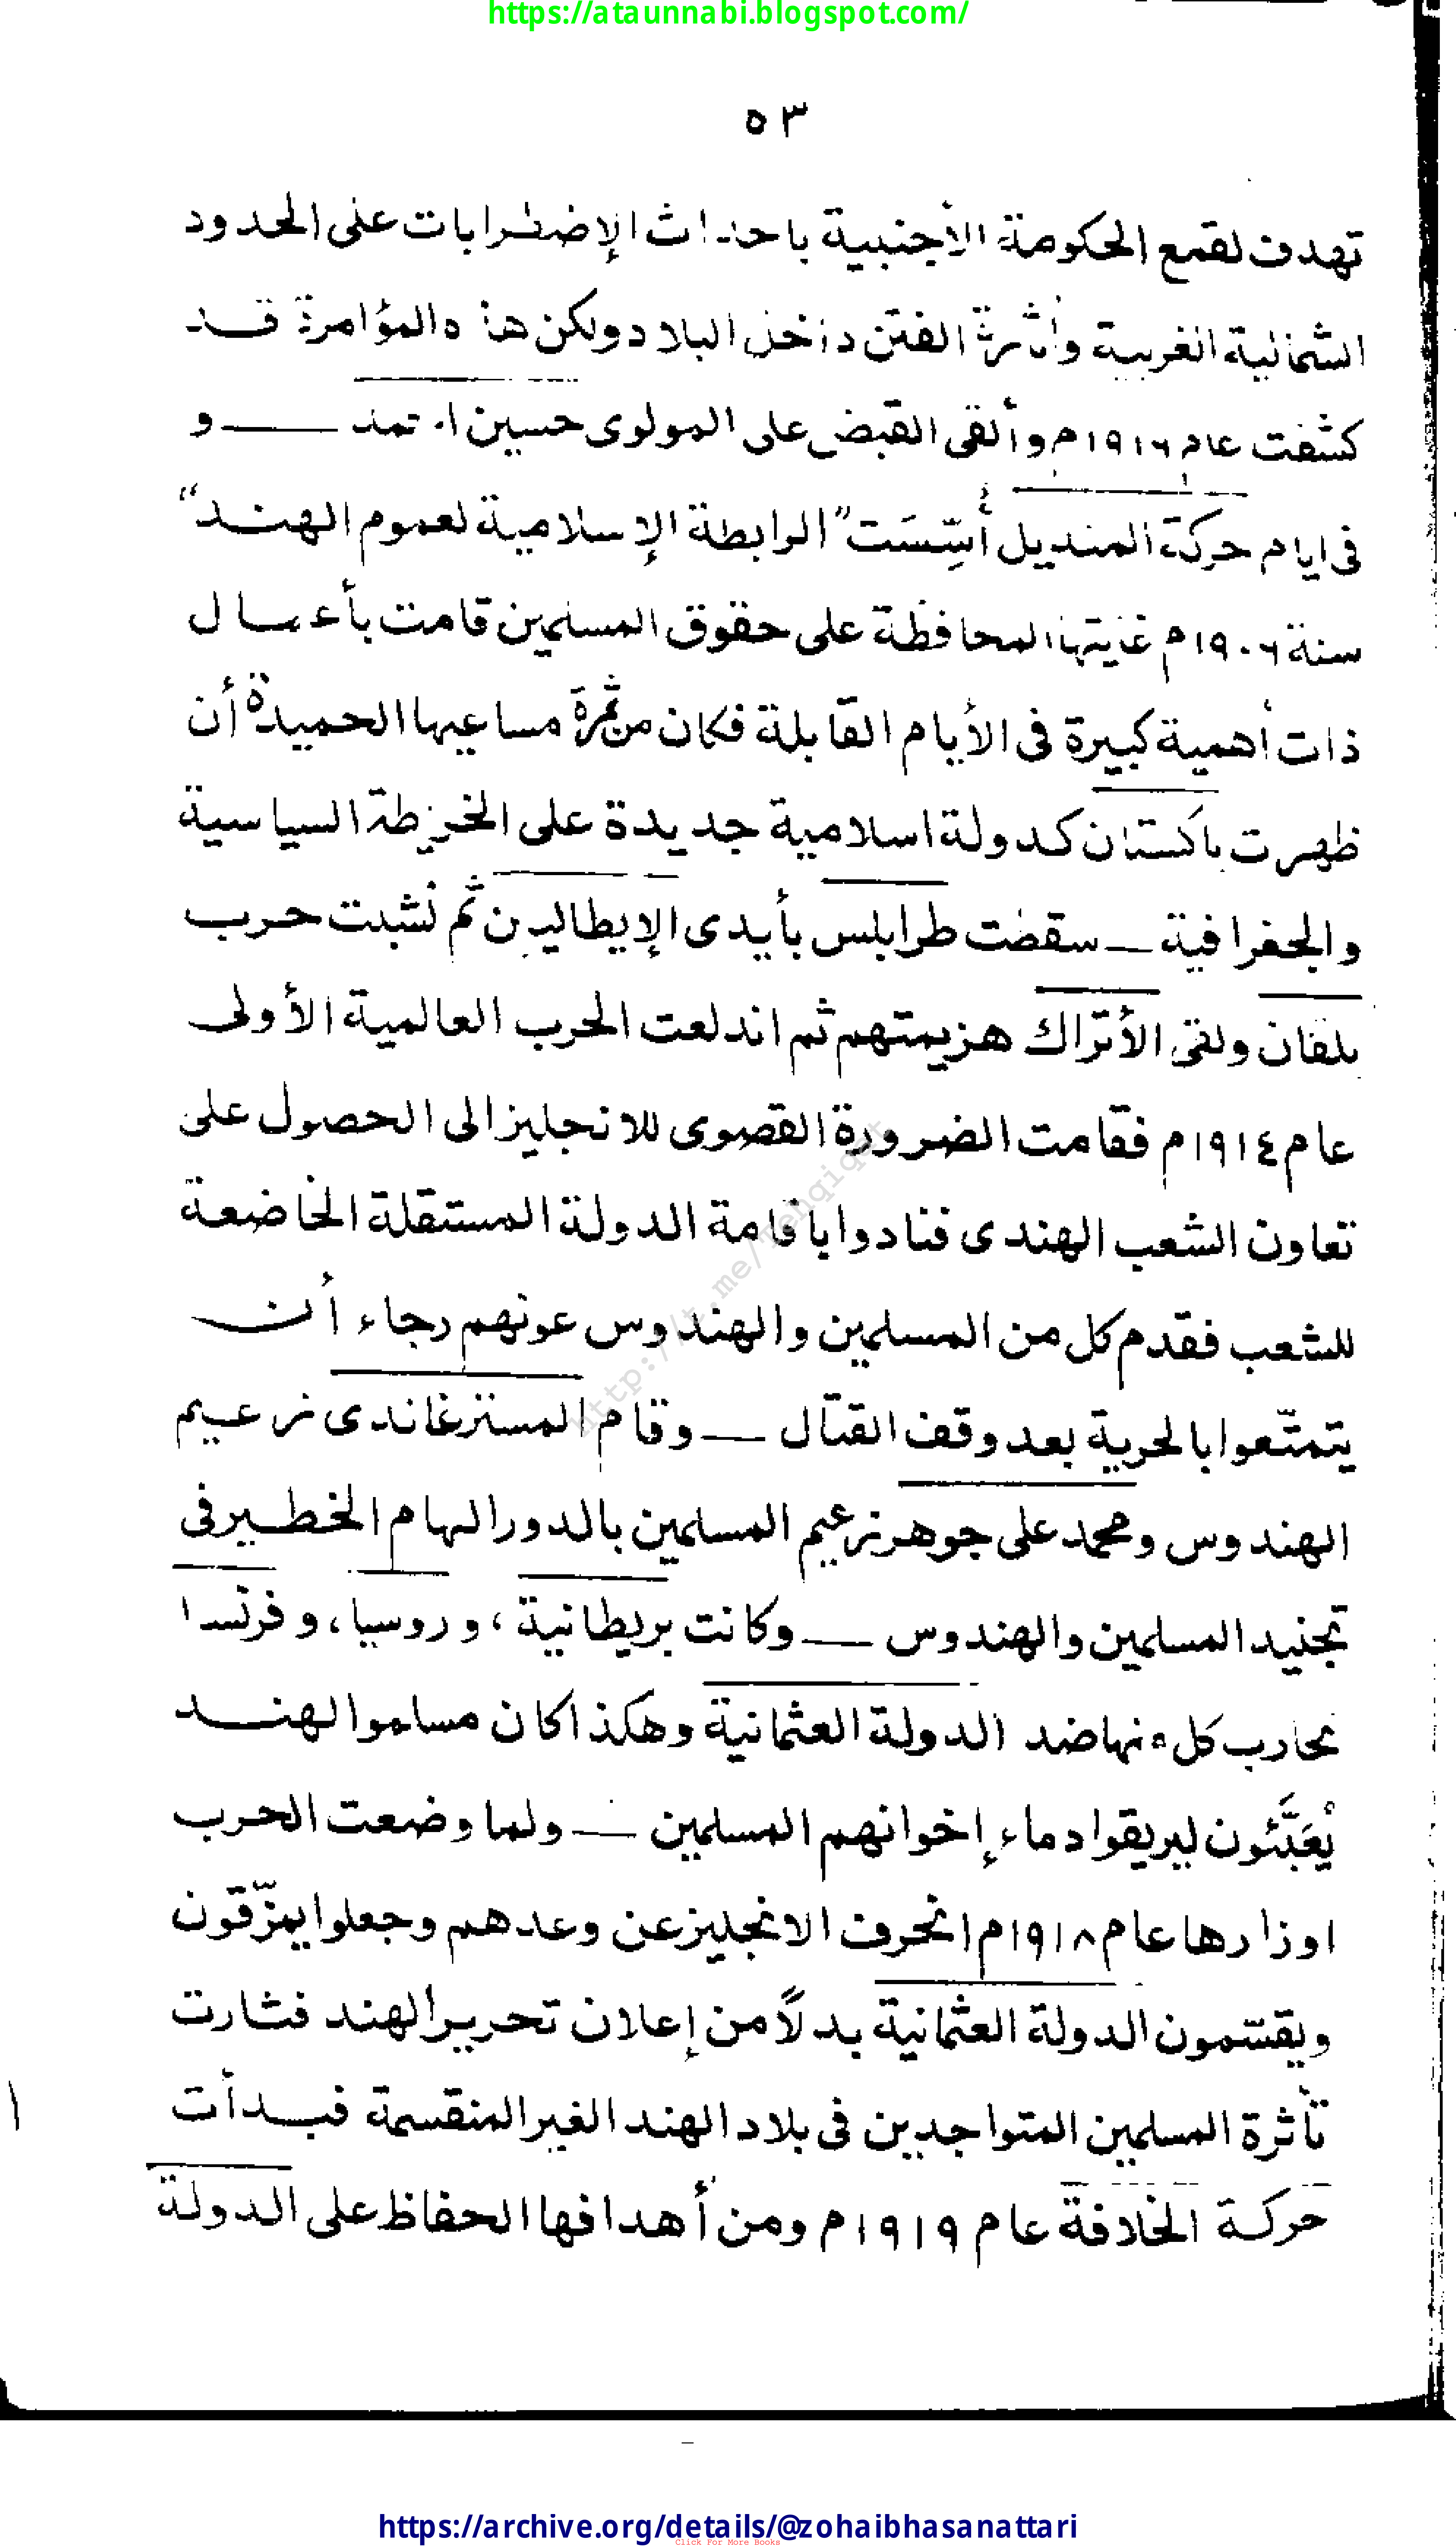 https://ataunnabi.blogspot.com/
٥٣
تهدف لقمع الحكومة الأجنبية باحداث الإضطرابات على الحدود
الشمالية الغربية وأثارة الفتن داخل البلاد ولكن هذه المؤامرة قد
كشفت عام ١٩١٦م وألقى القبض على المولوى حسين احمد — و
فى ايام حركة المنديل أُسِّسَت "الرابطة الإسلامية لعموم الهند"
سنة ١٩٠٦م غايتها المحافظة على حقوق المسلمين قامت بأعمال
ذات أهمية كبيرة فى الأيام القابلة فكان من ثمرة مساعيها الحميدة أن
ظهرت باكستان كدولة اسلامية جديدة على الخريطة السياسية
والجغرافية — سقطت طرابلس بأيدى الإيطاليين ثم نشبت حرب
بلقان ولقى الأتراك هزيمتهم ثم اندلعت الحرب العالمية الأولى
عام ١٩١٤م فقامت الضرورة القصوى للانجليز الى الحصول على
تعاون الشعب الهندى فنادوا باقامة الدولة المستقلة الخاضعة
للشعب فقدم كل من المسلمين والهندوس عونهم رجاء أن
يتمتّعوا بالحرية بعد وقف القتال — وقام المستر غاندى زعيم
الهندوس ومحمد على جوهر زعيم المسلمين بالدور الهام الخطير فى
تجنيد المسلمين والهندوس — وكانت بريطانية، و روسيا، و فرنسا
تحارب كل منها ضد الدولة العثمانية وهكذا كان مسلموا الهند
يُعَبَّئون ليريقوا دماء إخوانهم المسلمين — ولما وضعت الحرب
اوزارها عام ١٩١٨م انحرف الانجليز عن وعدهم وجعلوا يمزّقون
ويقسّمون الدولة العثمانية بدلًا من إعلان تحرير الهند فثارت
ثأثرة المسلمين المتواجدين فى بلاد الهند الغير المنقسمة فبدأت
حركة الخلافة عام ١٩١٩م ومن أهدافها الحفاظ على الدولة
https://archive.org/details/@zohaibhasanattari
Click For More Books